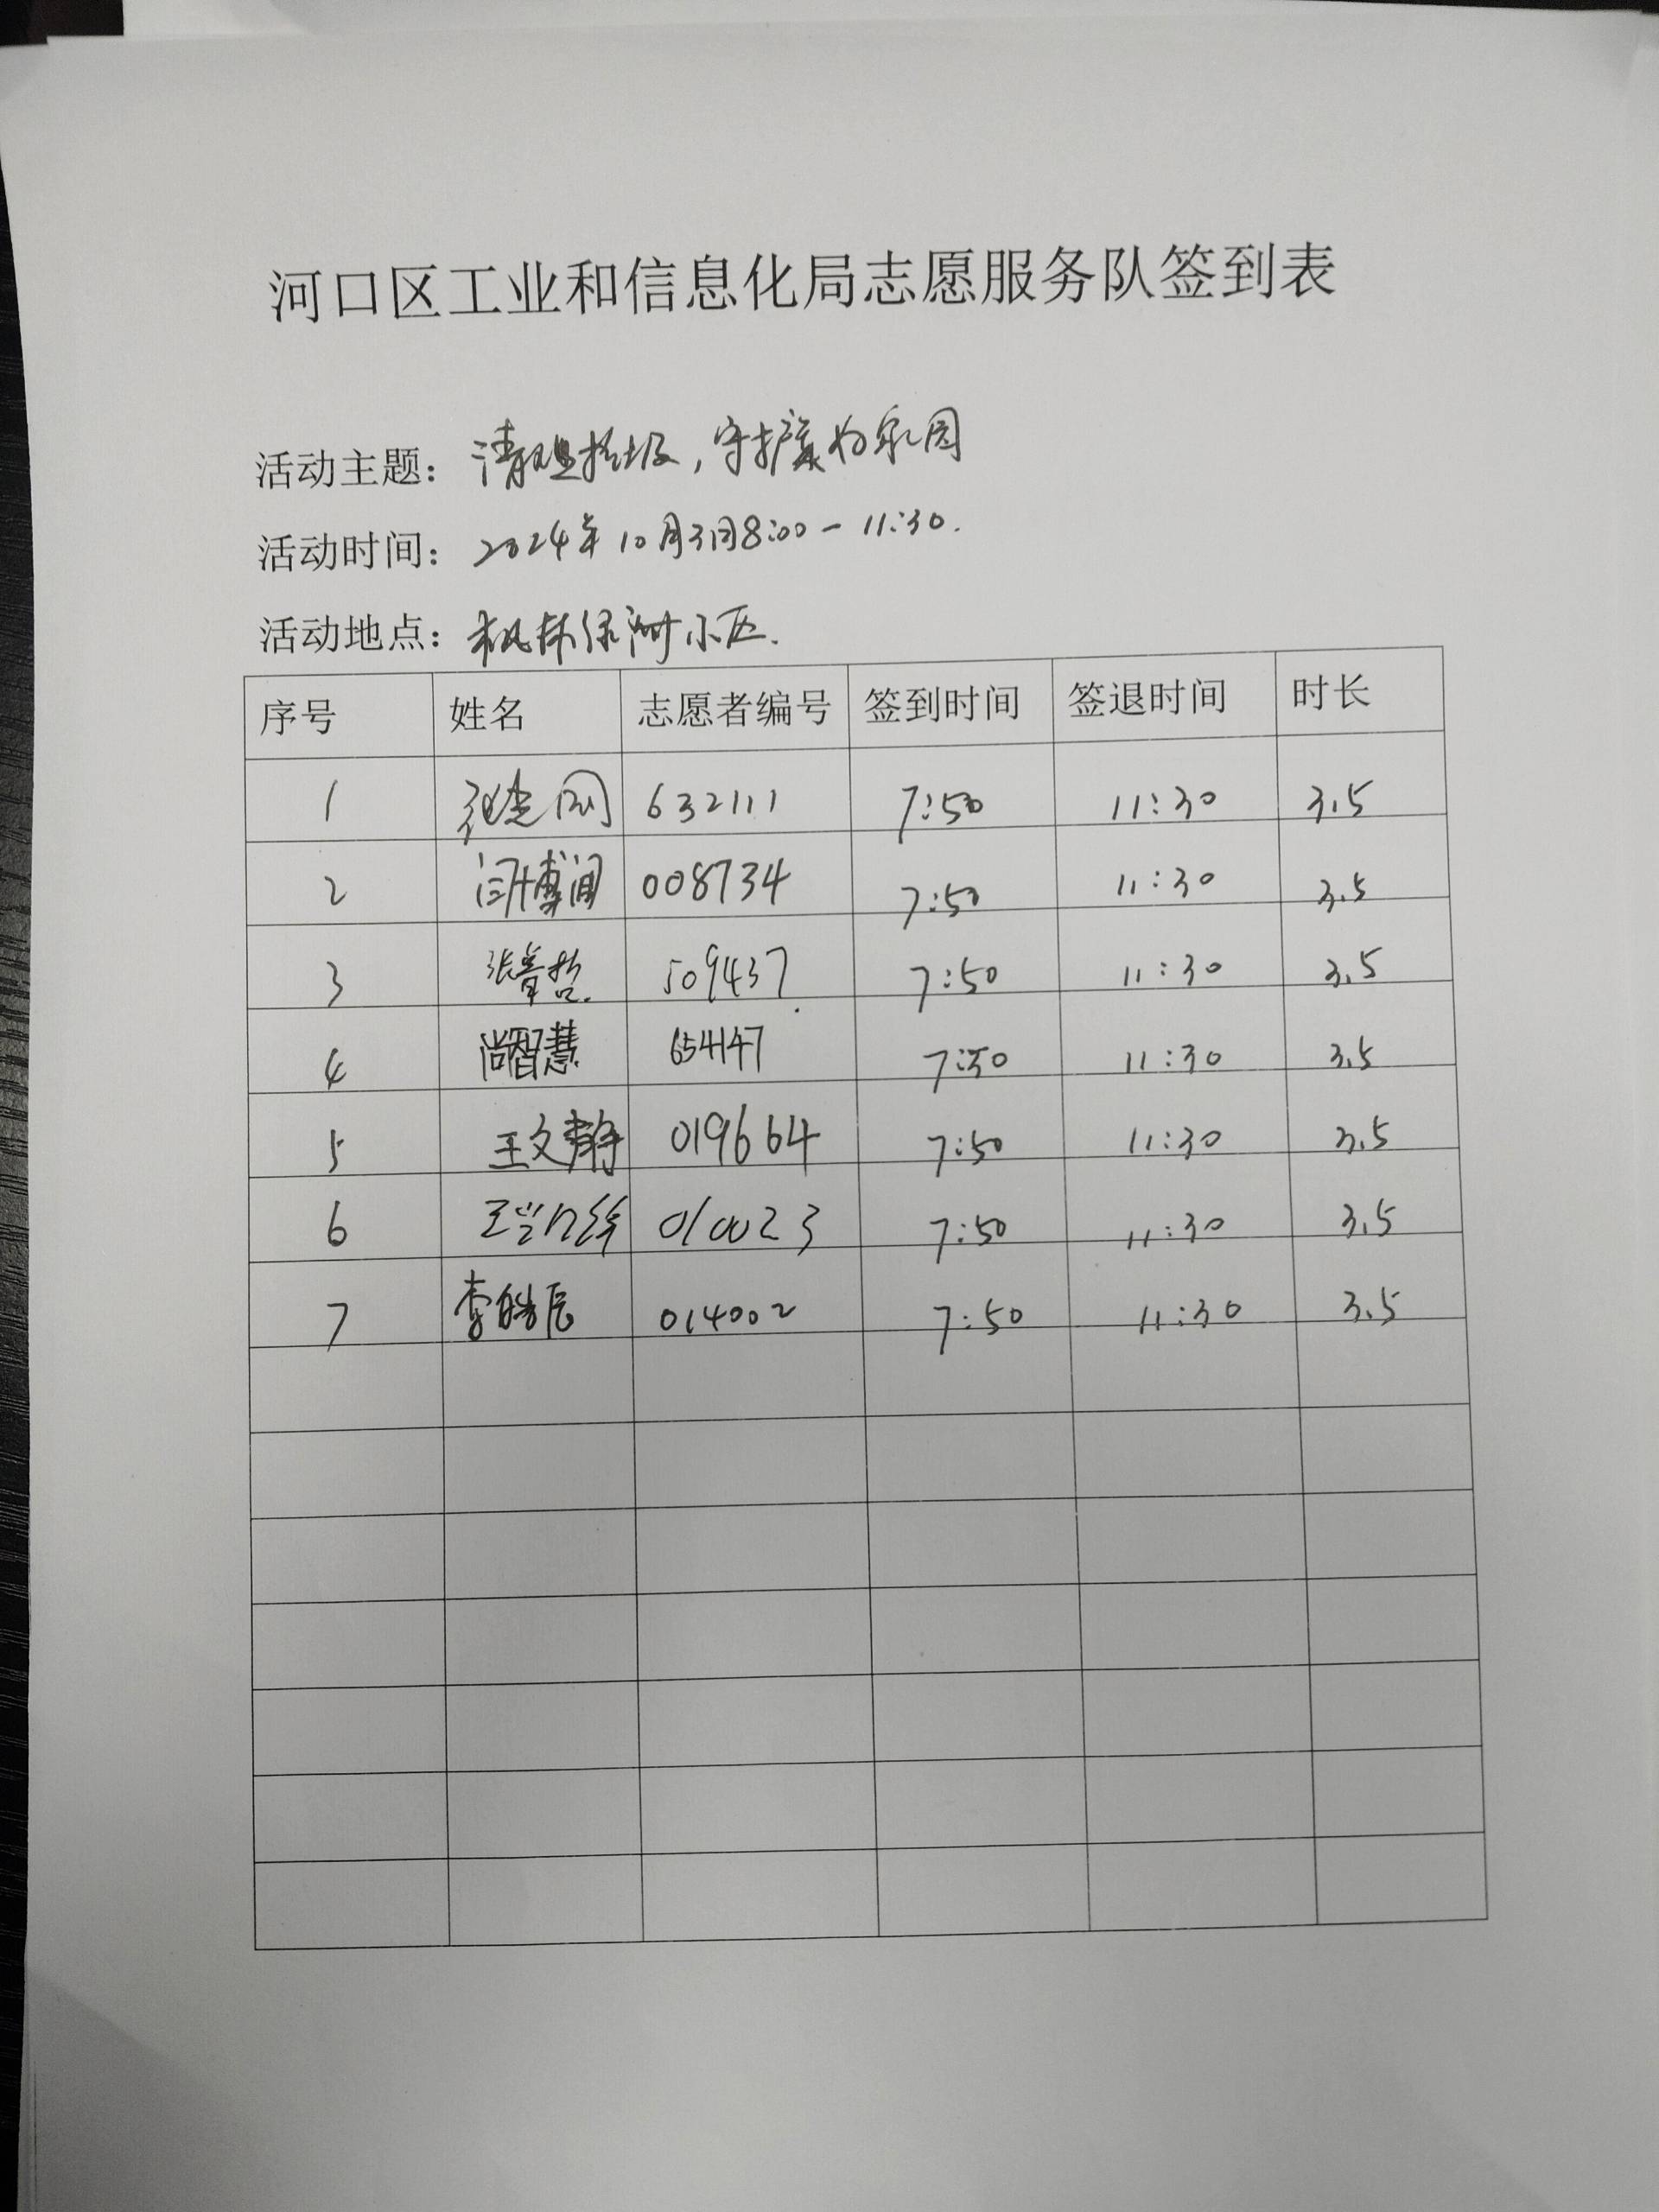 河口区工业和信息化局志愿服务队签到表
活动主题：清理垃圾，守护美好家园
活动时间：2024年10月3日8:00－11:30.
活动地点：枫林绿洲小区.
序号 姓名 志愿者编号 签到时间 签退时间 时长
1 632111 7:50 11:30 3.5
2 闫博闻 008734 7:50 11:30 3.5
3 张 509437 7:50 11:30 3.5
4 尚智慧 654147 7:50 11:30 3.5
5 王文静 019664 7:50 11:30 3.5
6 010023 7:50 11:30 3.5
7 李皓辰 014002 7:50 11:30 3.5